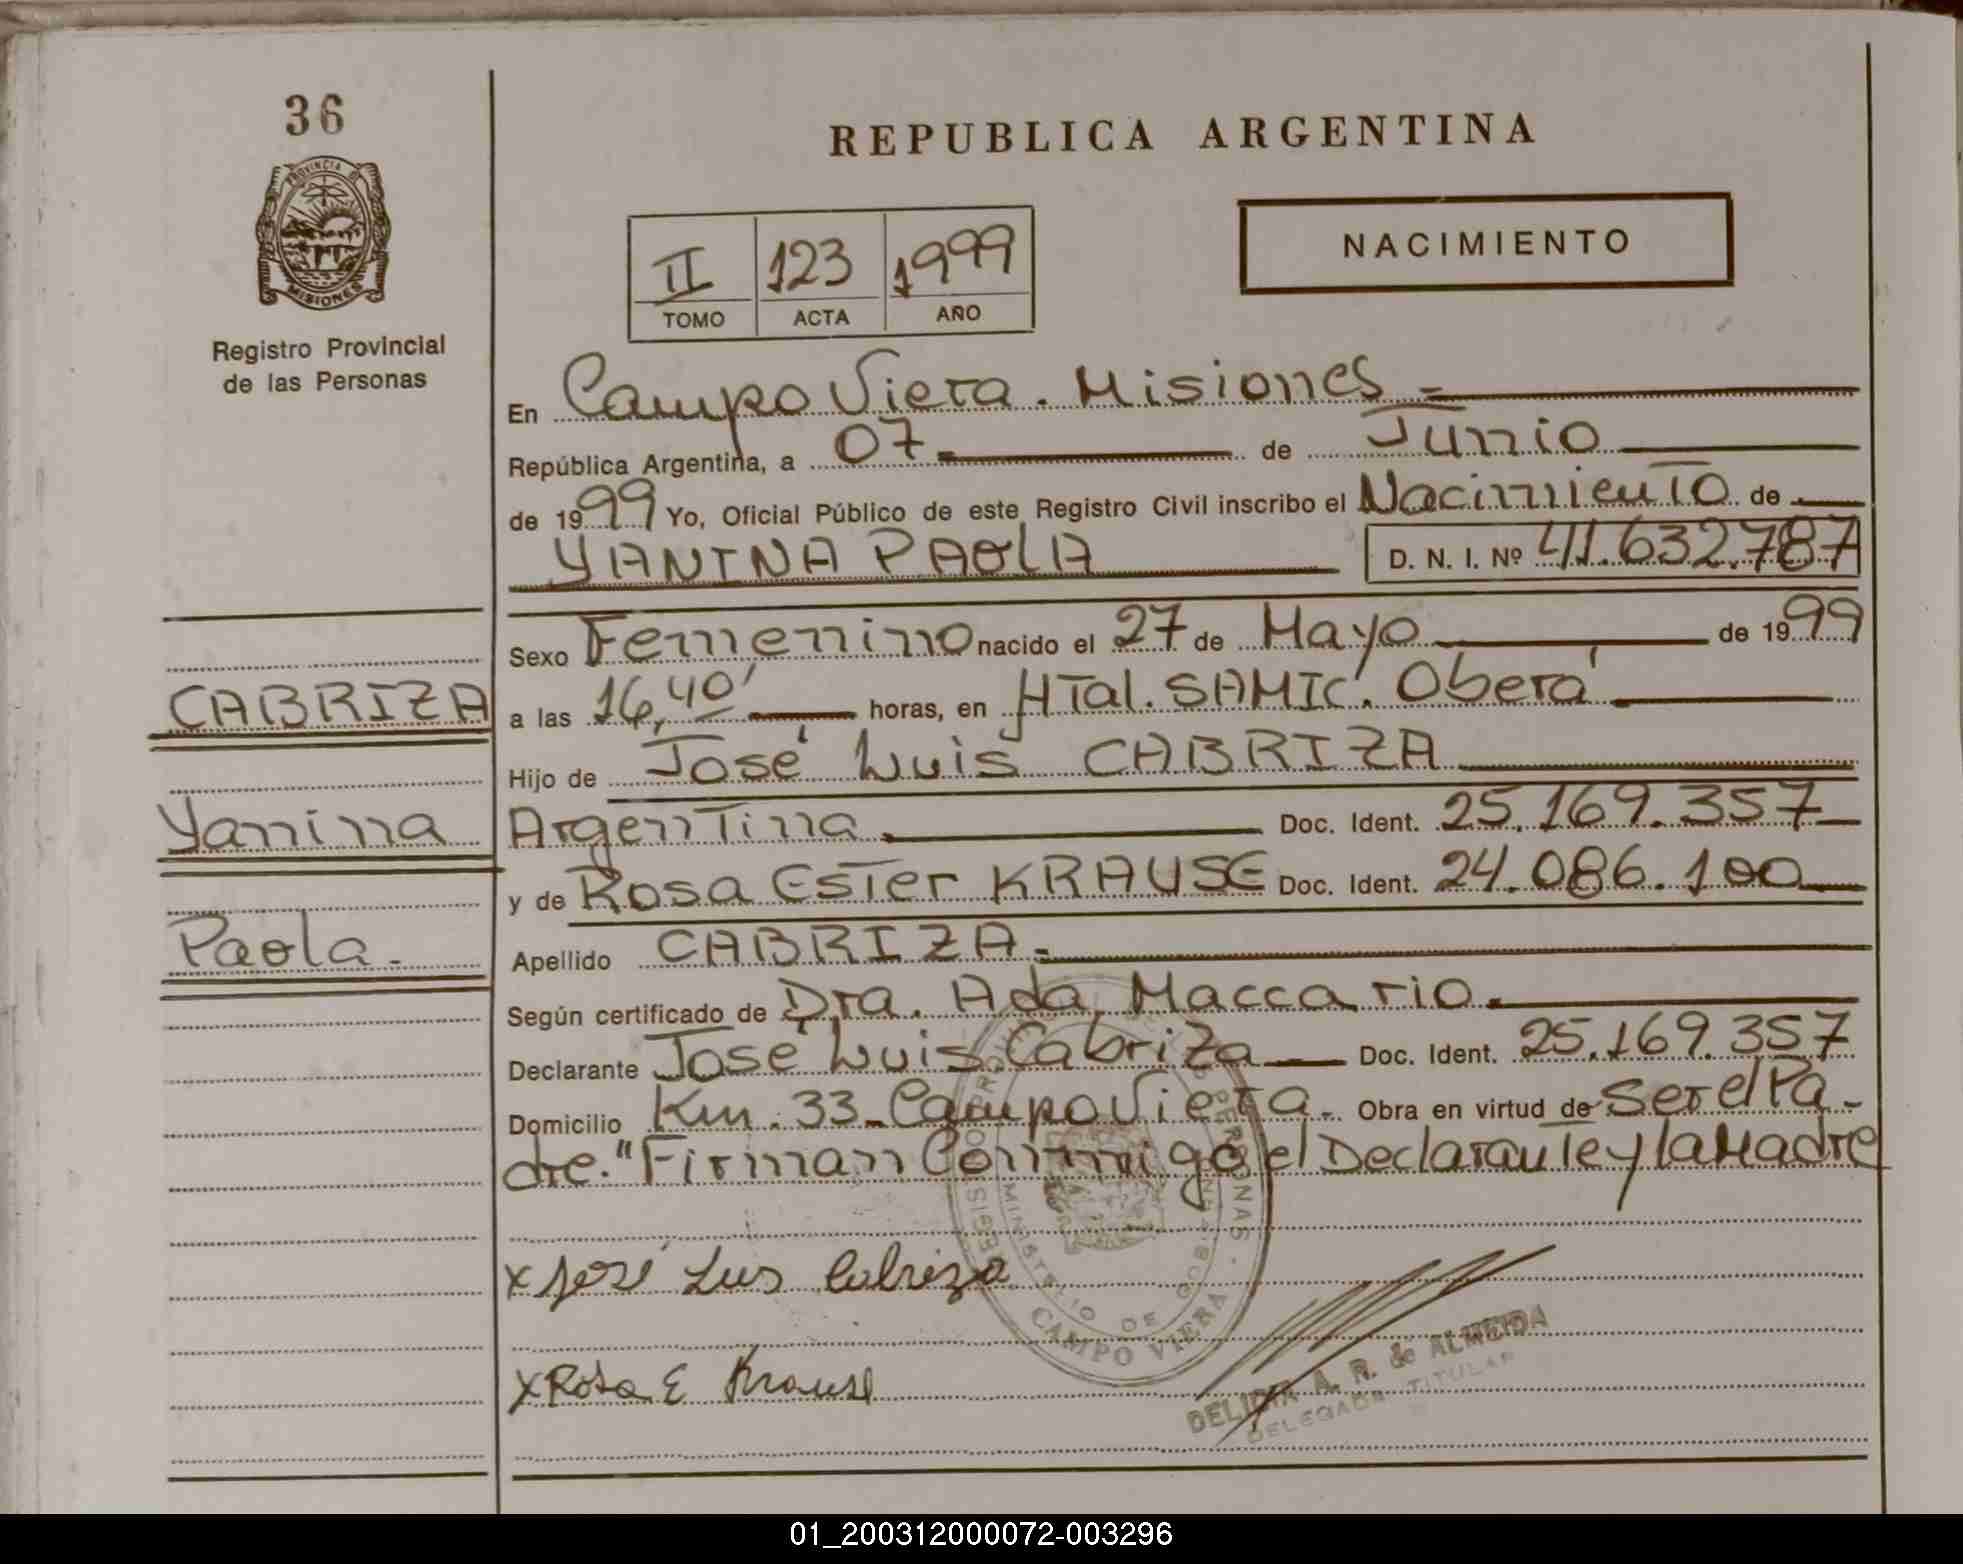 36
PROVINCIA DE
MISIONES
Registro Provincial
de las Personas
REPUBLICA ARGENTINA
II 123 1999
TOMO ACTA AÑO
NACIMIENTO
En Campo Viera. Misiones =
República Argentina, a 07 de Junio
de 1999 Yo, Oficial Público de este Registro Civil inscribo el Nacimiento de
YANINA PAOLA D. N. I. Nº 41.632.787
Sexo Femenino nacido el 27 de Mayo de 1999
CABRIZA
a las 16,40' horas, en HTal. SAMIC. Oberá
Hijo de José Luis CABRIZA
Yanina
Argentina Doc. Ident. 25.169.357
y de Rosa Ester KRAUSE Doc. Ident. 24.086.100
Paola.-
Apellido CABRIZA =
Según certificado de Dra. Ada Maccario.
Declarante José Luis Cabriza Doc. Ident. 25.169.357
Domicilio Km. 33 - Campo Viera. Obra en virtud de Ser el Pa-
dre. "Firman Conmigo el Declarante y la Madre
x José Luis Cabriza
x Rosa E Krause
MINISTERIO DE GOB
CAMPO VIERA
DELICIA A. R. de ALMEIDA
DELEGADA TITULAR
01_200312000072-003296